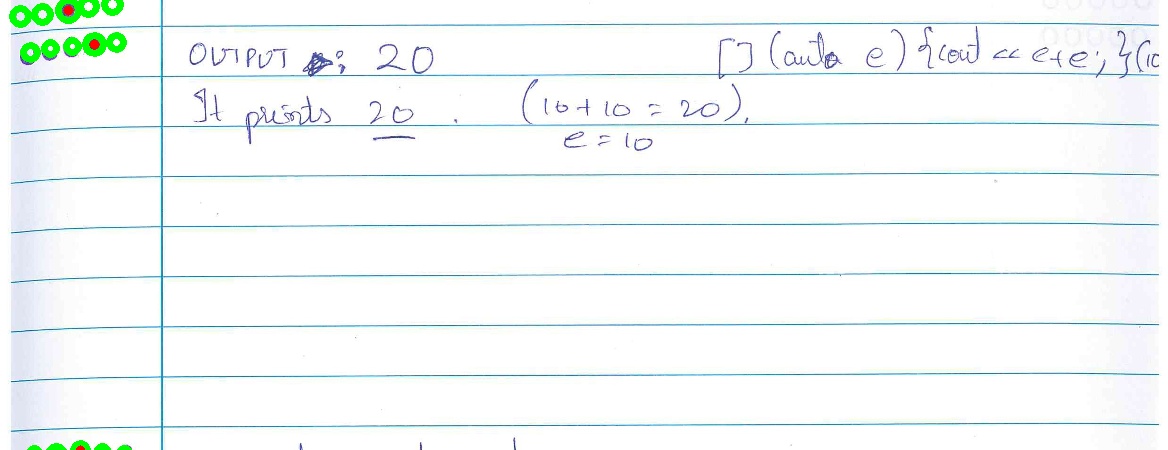 OUTPUT : 20 [] (auto e) {cout << e+e; } (10
It prints 20 . (10+10 = 20).
e = 10